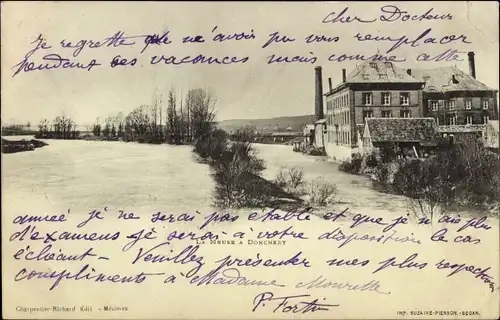 Cher Docteur
je regrette que ne n'avoir pu vous remplacer
pendant vos vacances mais comme cette
LA MEUSE A DONCHERY
année je ne serai pas établi et que je n'ai plus
d'examens je serai à votre disposition le cas
échéant – Veuillez présenter mes plus respectueux
compliments à Madame
P. Fortin
Charpentier-Richard Edit. - Mézières
IMP. SUZAINE-PIERSON.-SEDAN.